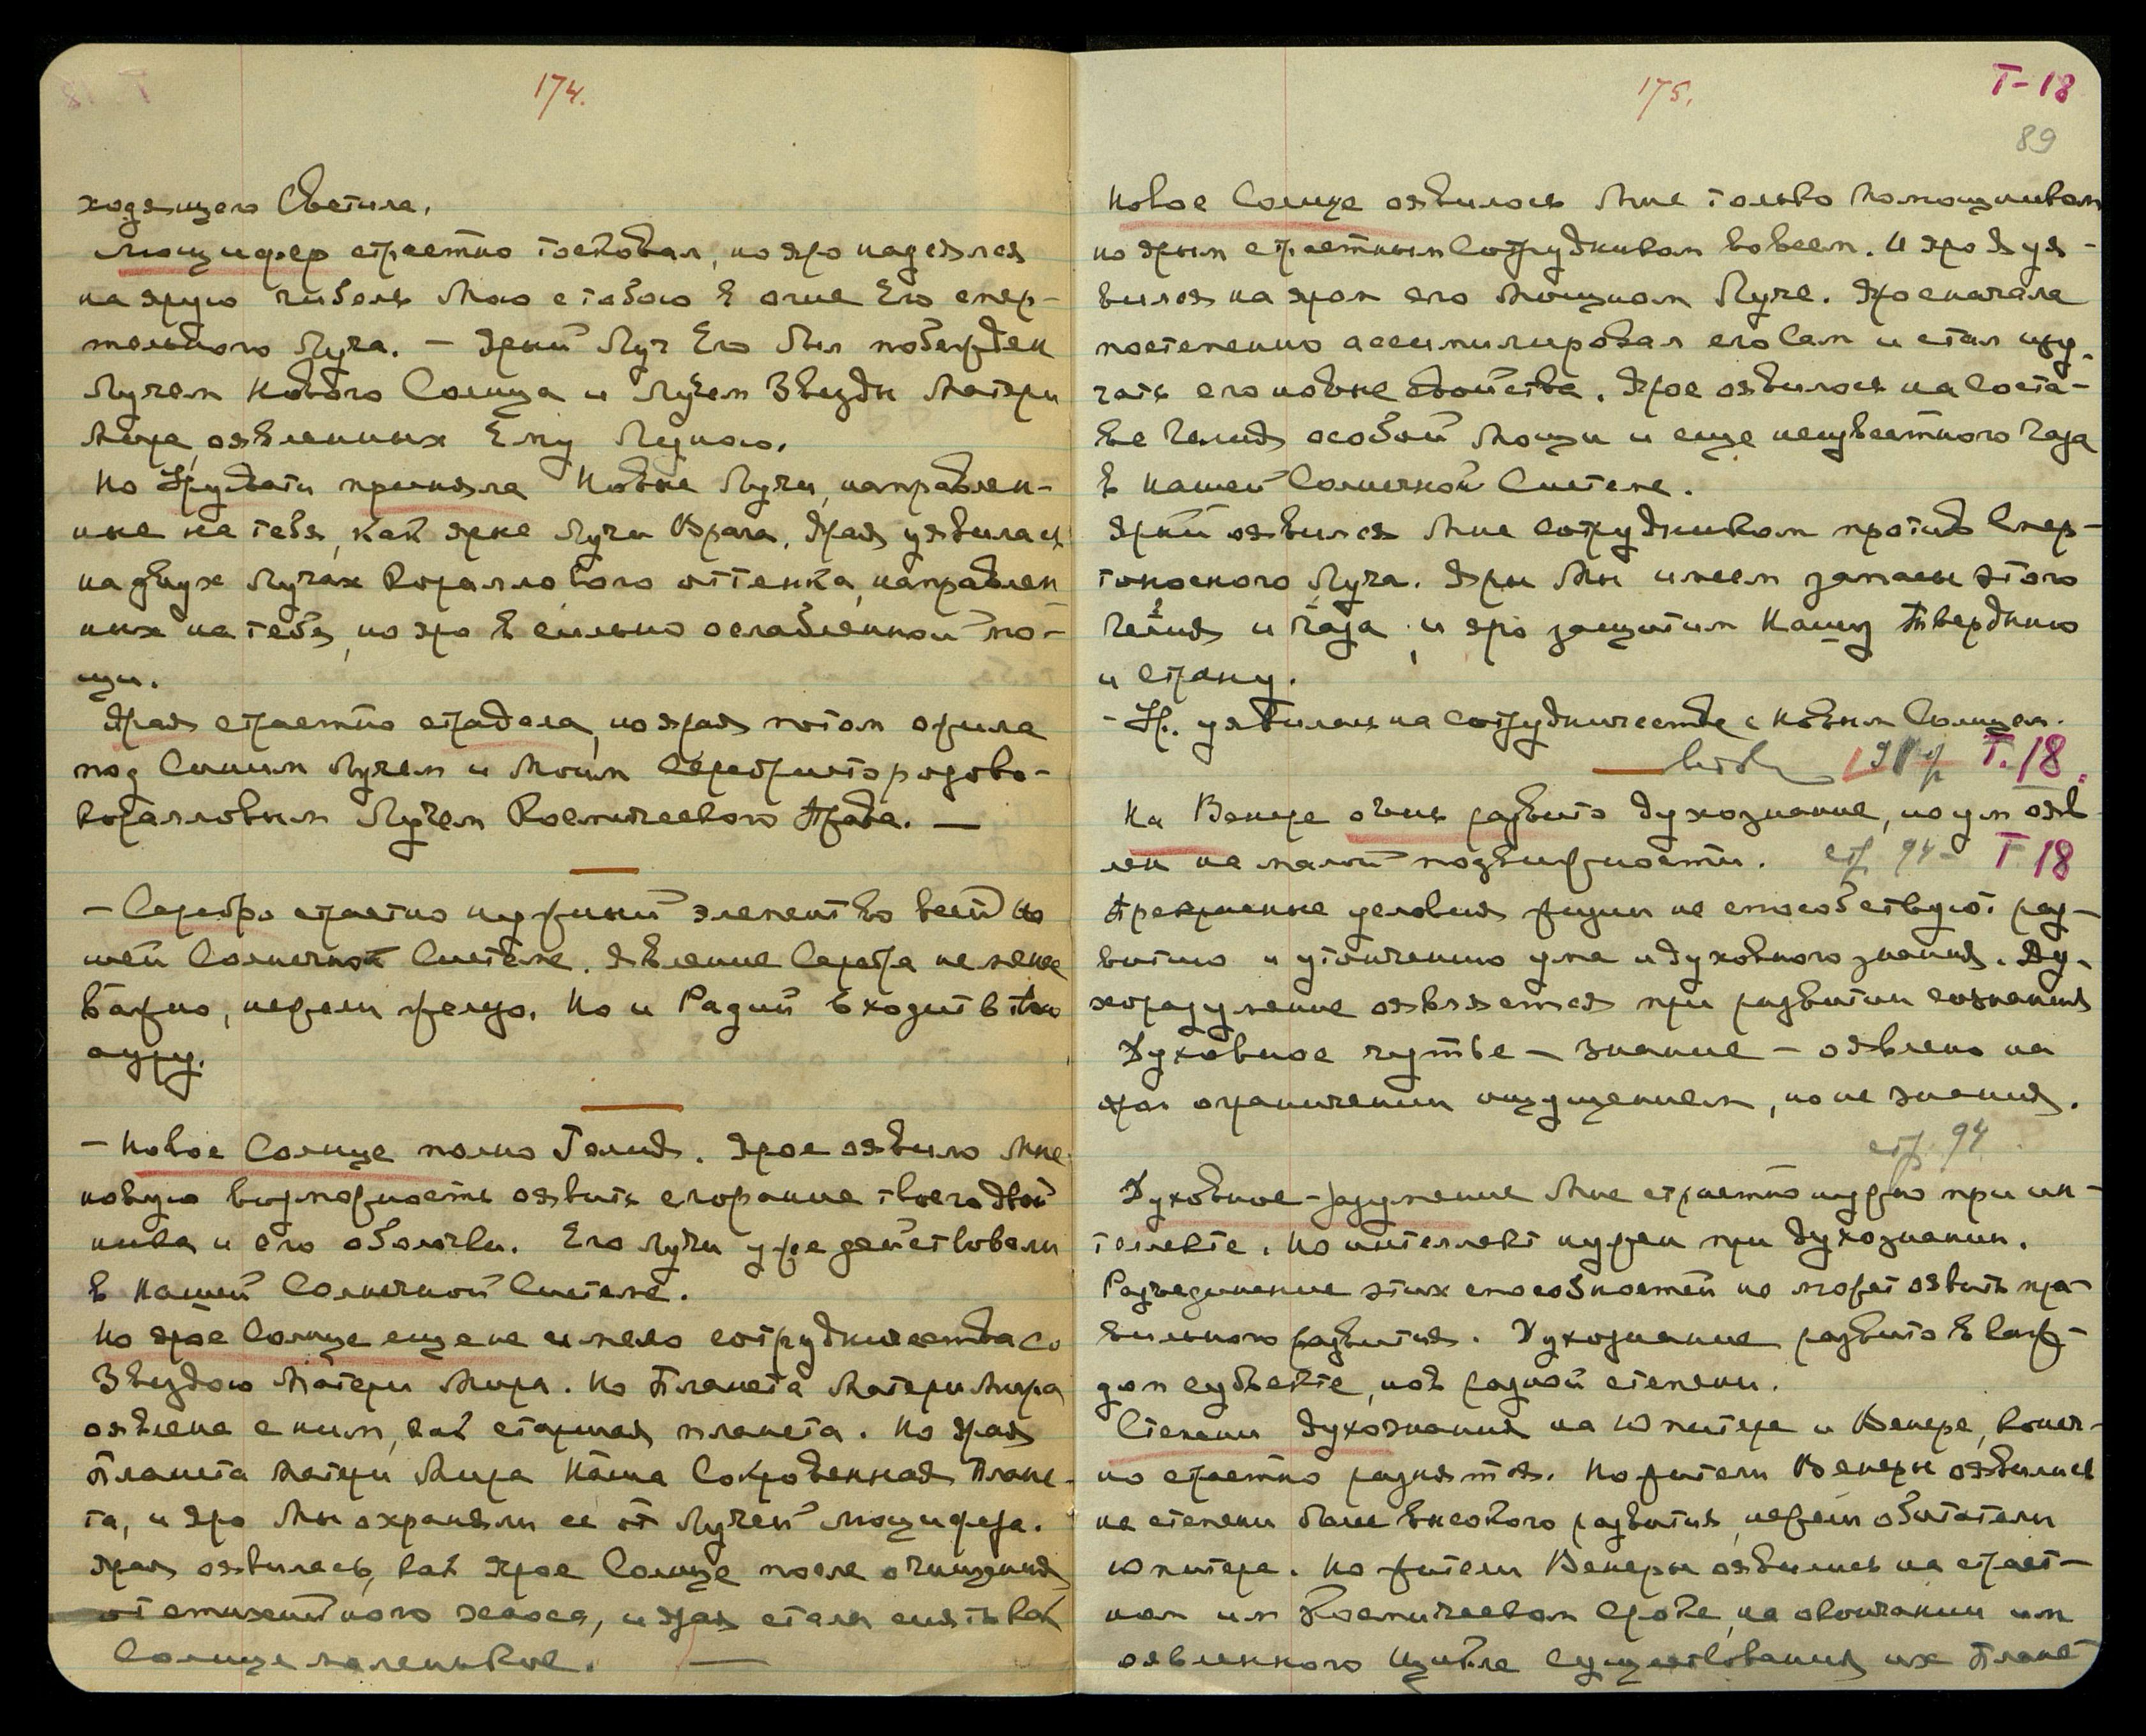 174.
ходящего Светила.
Люцифер страстно тосковал, но яро надеялся
на ярую гибель Мою с тобою в огне Его смер-
тельного Луча. — Ярый Луч Его был побежден
Лучем Нового Солнца и Лучем Звезды Матери
Мира, оявленных Ему Мною.
Но приняла Новые Лучи, направлен-
ные на тебя, как ярые Лучи Врага. Ярая уявилась
на двух Лучах Кораллового оттенка, направлен
ных на тебя, но яро в сильно ослабленной мо-
щи.
Ярая страстно страдала, но ярая потом ожила
под Синим Лучем и Моим Серебристо розово-
коралловым Лучем Космического Права. —
— Серебро страстно нужный элемент во всей На
шей Солнечной Системе. Явление Серебра не менее
важно, нежели железо. Но и Радий входит в твою
ауру.
— Новое Солнце полно Гелия. Ярое оявило Мне
новую возможность оявить сгорание твоего двой
ника и его оболочки. Его лучи уже действовали
в Нашей Солнечной Системе.
Но ярое Солнце еще не имело сотрудничества со
Звездою Матери Мира. Но Планета Матери Мира
оявлена с ним, как старшая планета. Но ярая
Планета Матери Мира Наша Сокровенная Плане-
та, и яро Мы охраняли ее от Лучей Люцифера.
Ярая оявилась, как ярое Солнце после очищения
от стихийного хаоса, и ярая стала сиять как
Солнце маленькое. —
175.
Т-18
89
Новое Солнце оявилось Мне только помощником
но ярым страстным Сотрудником во всем. И яро Я уя-
вился на яром его Мощном Луче. Яро сначала
постепенно ассимилировал его Сам и стал изу-
чать его новые свойства. Ярое оявилось на соста-
ве Гелия особой Мощи и еще неизвестного Газа
в Нашей Солнечной Системе.
Ярый оявился Мне сотрудником против Смер-
тоносного Луча. Яры Мы имеем запасы этого
Гелия и Газа и яро защитим Нашу Твердыню
и страну.
- Ур. уявилась на Сотрудничестве с Новым Солнцем.
Т. 18.
На Венере очень развито духознание, но ум ояв
лен на малой подвижности. стр 94 - Т 18
Прекрасные условия жизни не способствуют раз-
витию и утончению ума и духовного знания. Ду-
хоразумение оявляется при развитии сознания
Духовное чутье — знание — оявлено на
яром ограничении ощущением, но не знания.
стр. 94.
Духовное-разумение Мне страстно нужно при ин-
теллекте. Но интеллект нужен при духознании.
Разъединение этих способностей не может оявить пра-
вильного развития. Духознание развито в каж-
дом субъекте, но в разной степени.
Степени духознания на Юпитере и Венере, конеч-
но страстно разнятся. Но жители Венеры оявились
на степени более высокого развития, нежели обитатели
Юпитера. Но жители Венеры оявились на страст-
ном им Космическом Сроке, на окончании им
оявленного Цикла Существования их Плане-